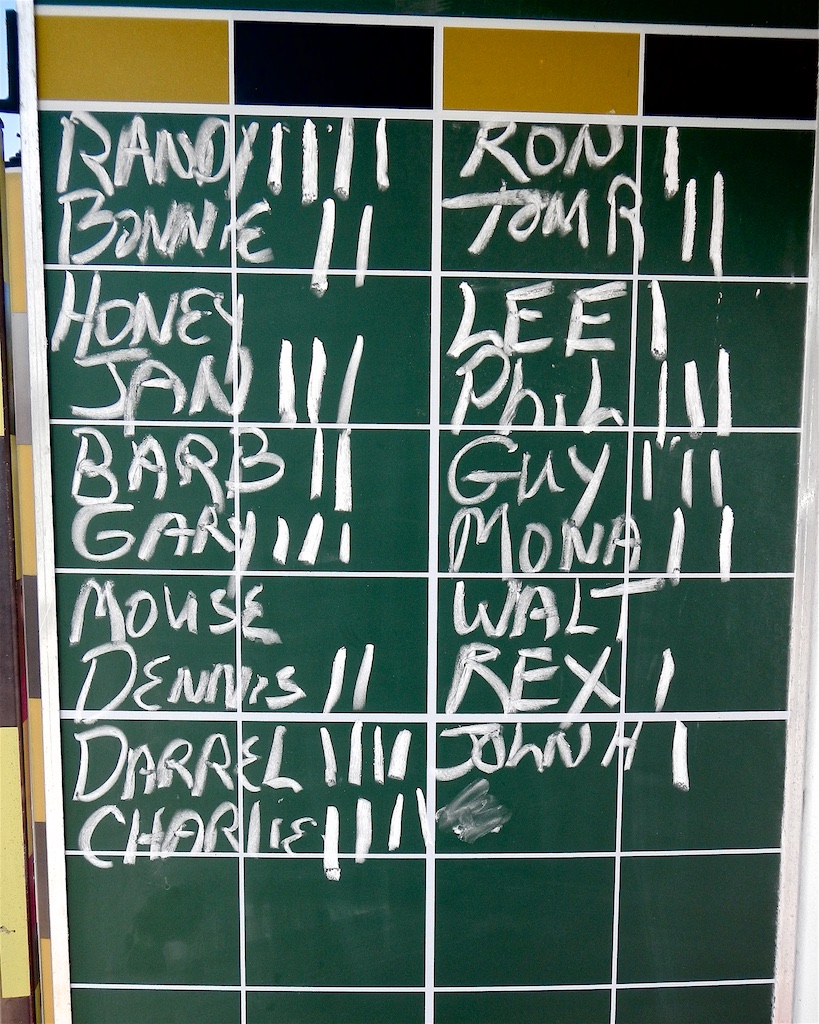 RANDY ||||
BONNIE ||
HONEY
JAN |||
BARB ||
GARY |||
MOUSE
DENNIS ||
DARREL ||||
CHARLIE ||||
RON |
TOM R ||
LEE |
PHIL |||
GUY |||
MONA ||
WALT
REX |
JOHN H |